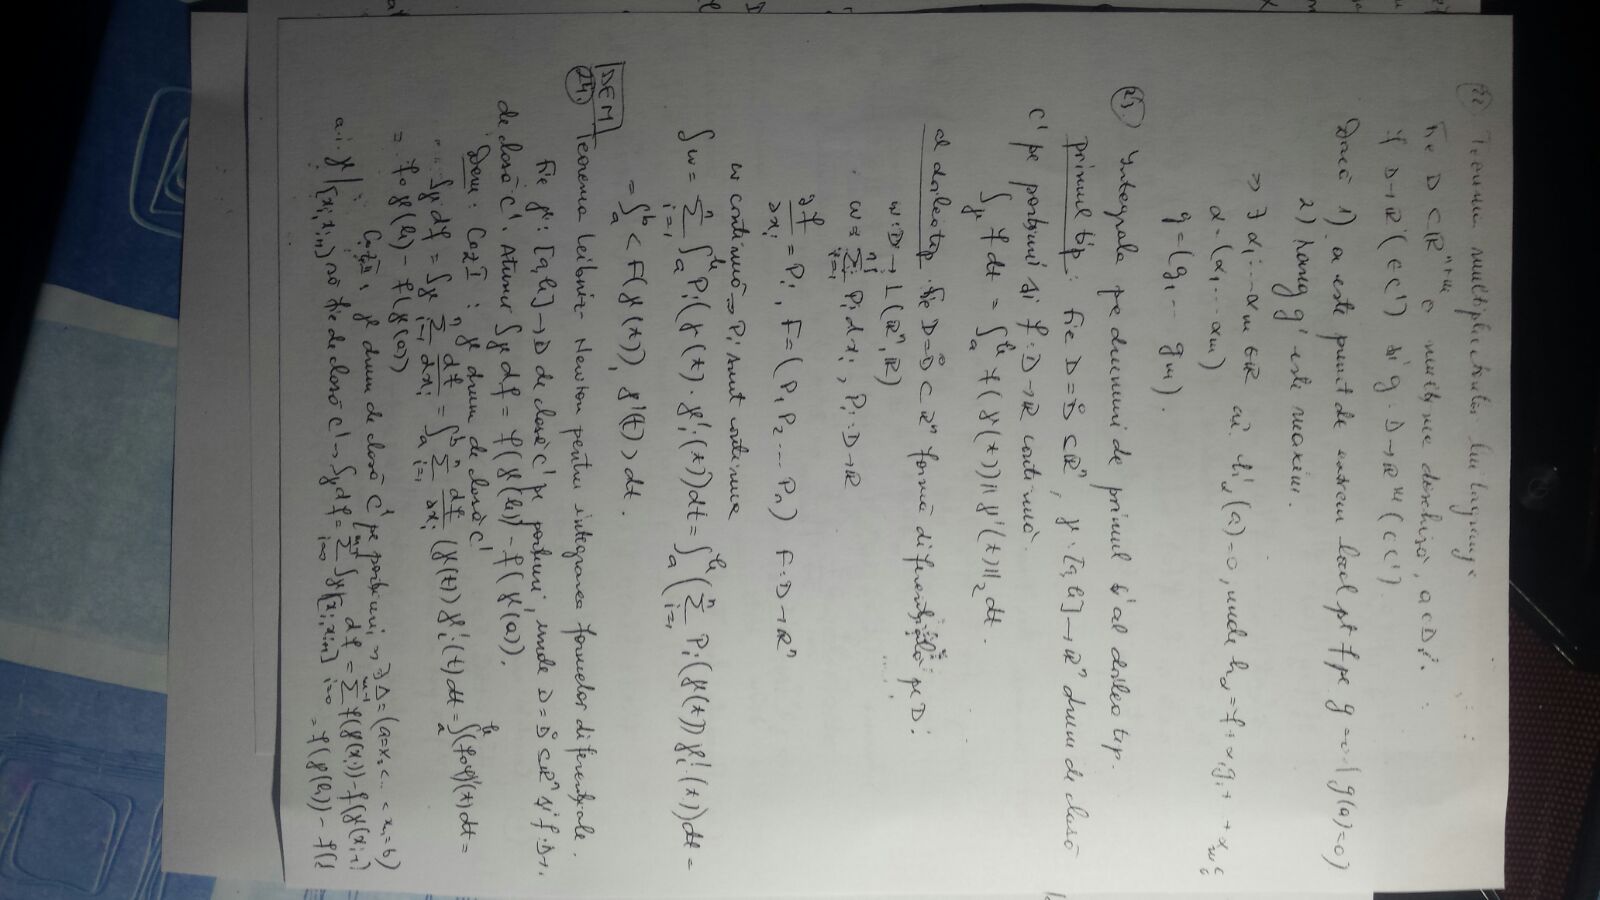 22) Teorema multiplicatorilor lui Lagrange
Fie D ⊂ ℝⁿ⁺ᵐ o mulțime deschisă, a ∈ D și
f D→ℝ (∈C¹) și g : D→ℝᵐ (∈C¹)
Dacă 1) a este punct de extrem local pt f pe g=0 ( g(a)=0)
2) rang g' este maxim.
⇒ ∃ α₁ ... αₘ ∈ ℝ aî. h'_α(a)=0, unde h_α = f + α₁g₁ + + αₘ
α=(α₁ ... αₘ)
g=(g₁ ... gₘ).
23. Integrala pe drumuri de primul și al doilea tip.
primul tip : Fie D=D̊ ⊂ ℝⁿ, γ : [a,b]→ℝⁿ drum de clasă
C¹ pe porțiuni și f : D→ℝ continuă.
∫_γ f dt = ∫_a^b f(γ(t)) ||γ'(t)||₂ dt.
al doilea tip. Fie D=D̊ ⊂ ℝⁿ formă diferențială pe D:
w : D → L(ℝⁿ, ℝ)
w = ∑_{i=1}^n P_i dx_i , P_i : D→ℝ
∂f/∂x_i = P_i , F=(P₁ P₂ ... Pₙ) F : D→ℝⁿ
w continuă ⇒ P_i sunt continue
∫w = ∑_{i=1}^n ∫_a^b P_i(γ(t) · γ'_i(t))dt = ∫_a^b (∑_{i=1}^n P_i(γ(t)) γ'_i(t))dt =
= ∫_a^b < F(γ(t)), γ'(t) > dt.
DEM
24. Teorema Leibniz - Newton pentru integrarea formelor diferențiale.
Fie γ : [a,b]→D de clasă C¹ pe porțiuni, unde D=D̊ ⊂ ℝⁿ și f : D→
de clasă C¹. Atunci ∫_γ df = f(γ(b)) - f(γ(a)).
Dem : Caz I : γ drum de clasă C¹
∫_γ df = ∫_γ ∑_{i=1}^n df/dx_i = ∫_a^b ∑_{i=1}^n df/dx_i (γ(t)) γ'_i(t) dt = ∫_a^b (f∘γ)'(t) dt =
= f∘γ(b) - f(γ(a))
Caz II. γ drum de clasă C¹ pe porțiuni ⇒ ∃ Δ=(a=x₀<.. < xₙ=b)
a.i. γ|_[x_i, x_{i+1}] să fie de clasă C¹ → ∫_γ df = ∑_{i=0}^{m-1} ∫_γ|_[x_i, x_{i+1}] df = ∑_{i=0}^{m-1} f(γ(x_i)) - f(γ(x_{i-1}
= f(γ(b)) - f(